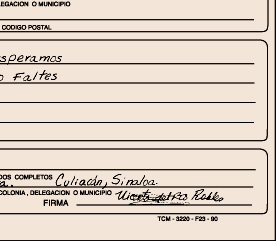 DELEGACION O MUNICIPIO
CODIGO POSTAL
speramos
o Faltes
DOS COMPLETOS Culiacán, Sinaloa.
a.
COLONIA, DELEGACION O MUNICIPIO
FIRMA Robles
TCM - 3220 - F23 - 90